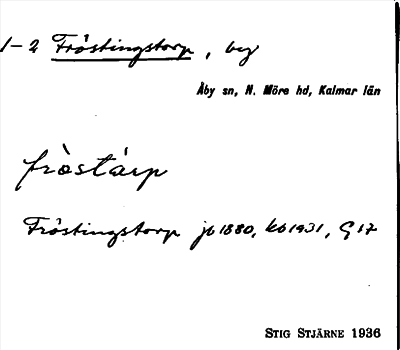 1-2 Fröstingstorp, by
Åby sn, N. Möre hd, Kalmar län
fròstárp
Fröstingstorp jb 1880, kb 1931, G 17
STIG STJÄRNE 1936